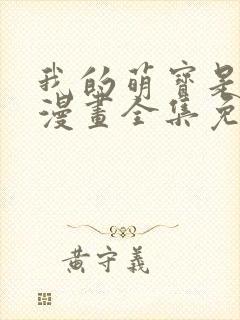 我的萌寶是
漫畫全集免
黃守義